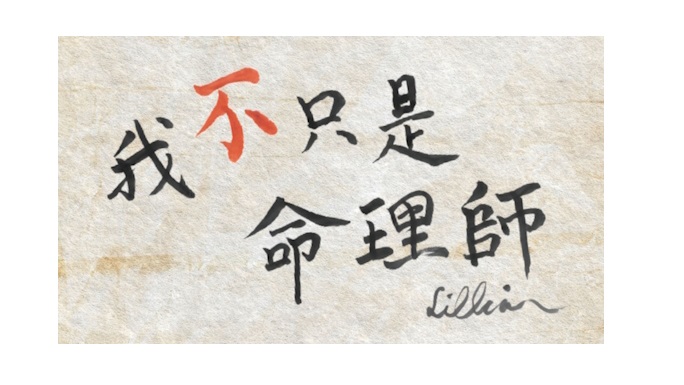 我不只是
命理師
Lillian